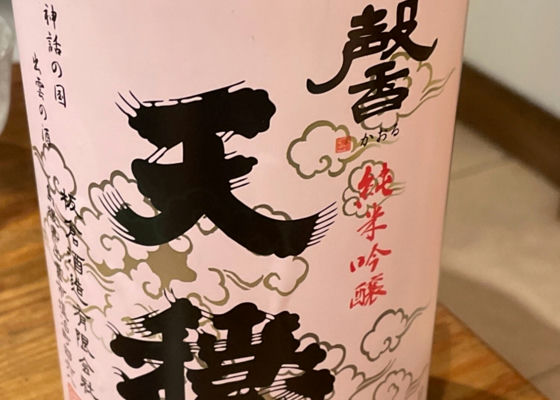 馨
かおる
純米吟醸
天穏
神話の国
出雲の酒
板倉酒造有限会社